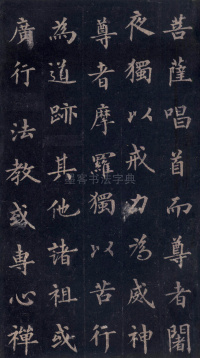 菩薩唱首而尊者闍
夜獨以戒力為威神
尊者摩羅獨以苦行
為道跡其他諸祖或
廣行法教或專心禪
书法字典